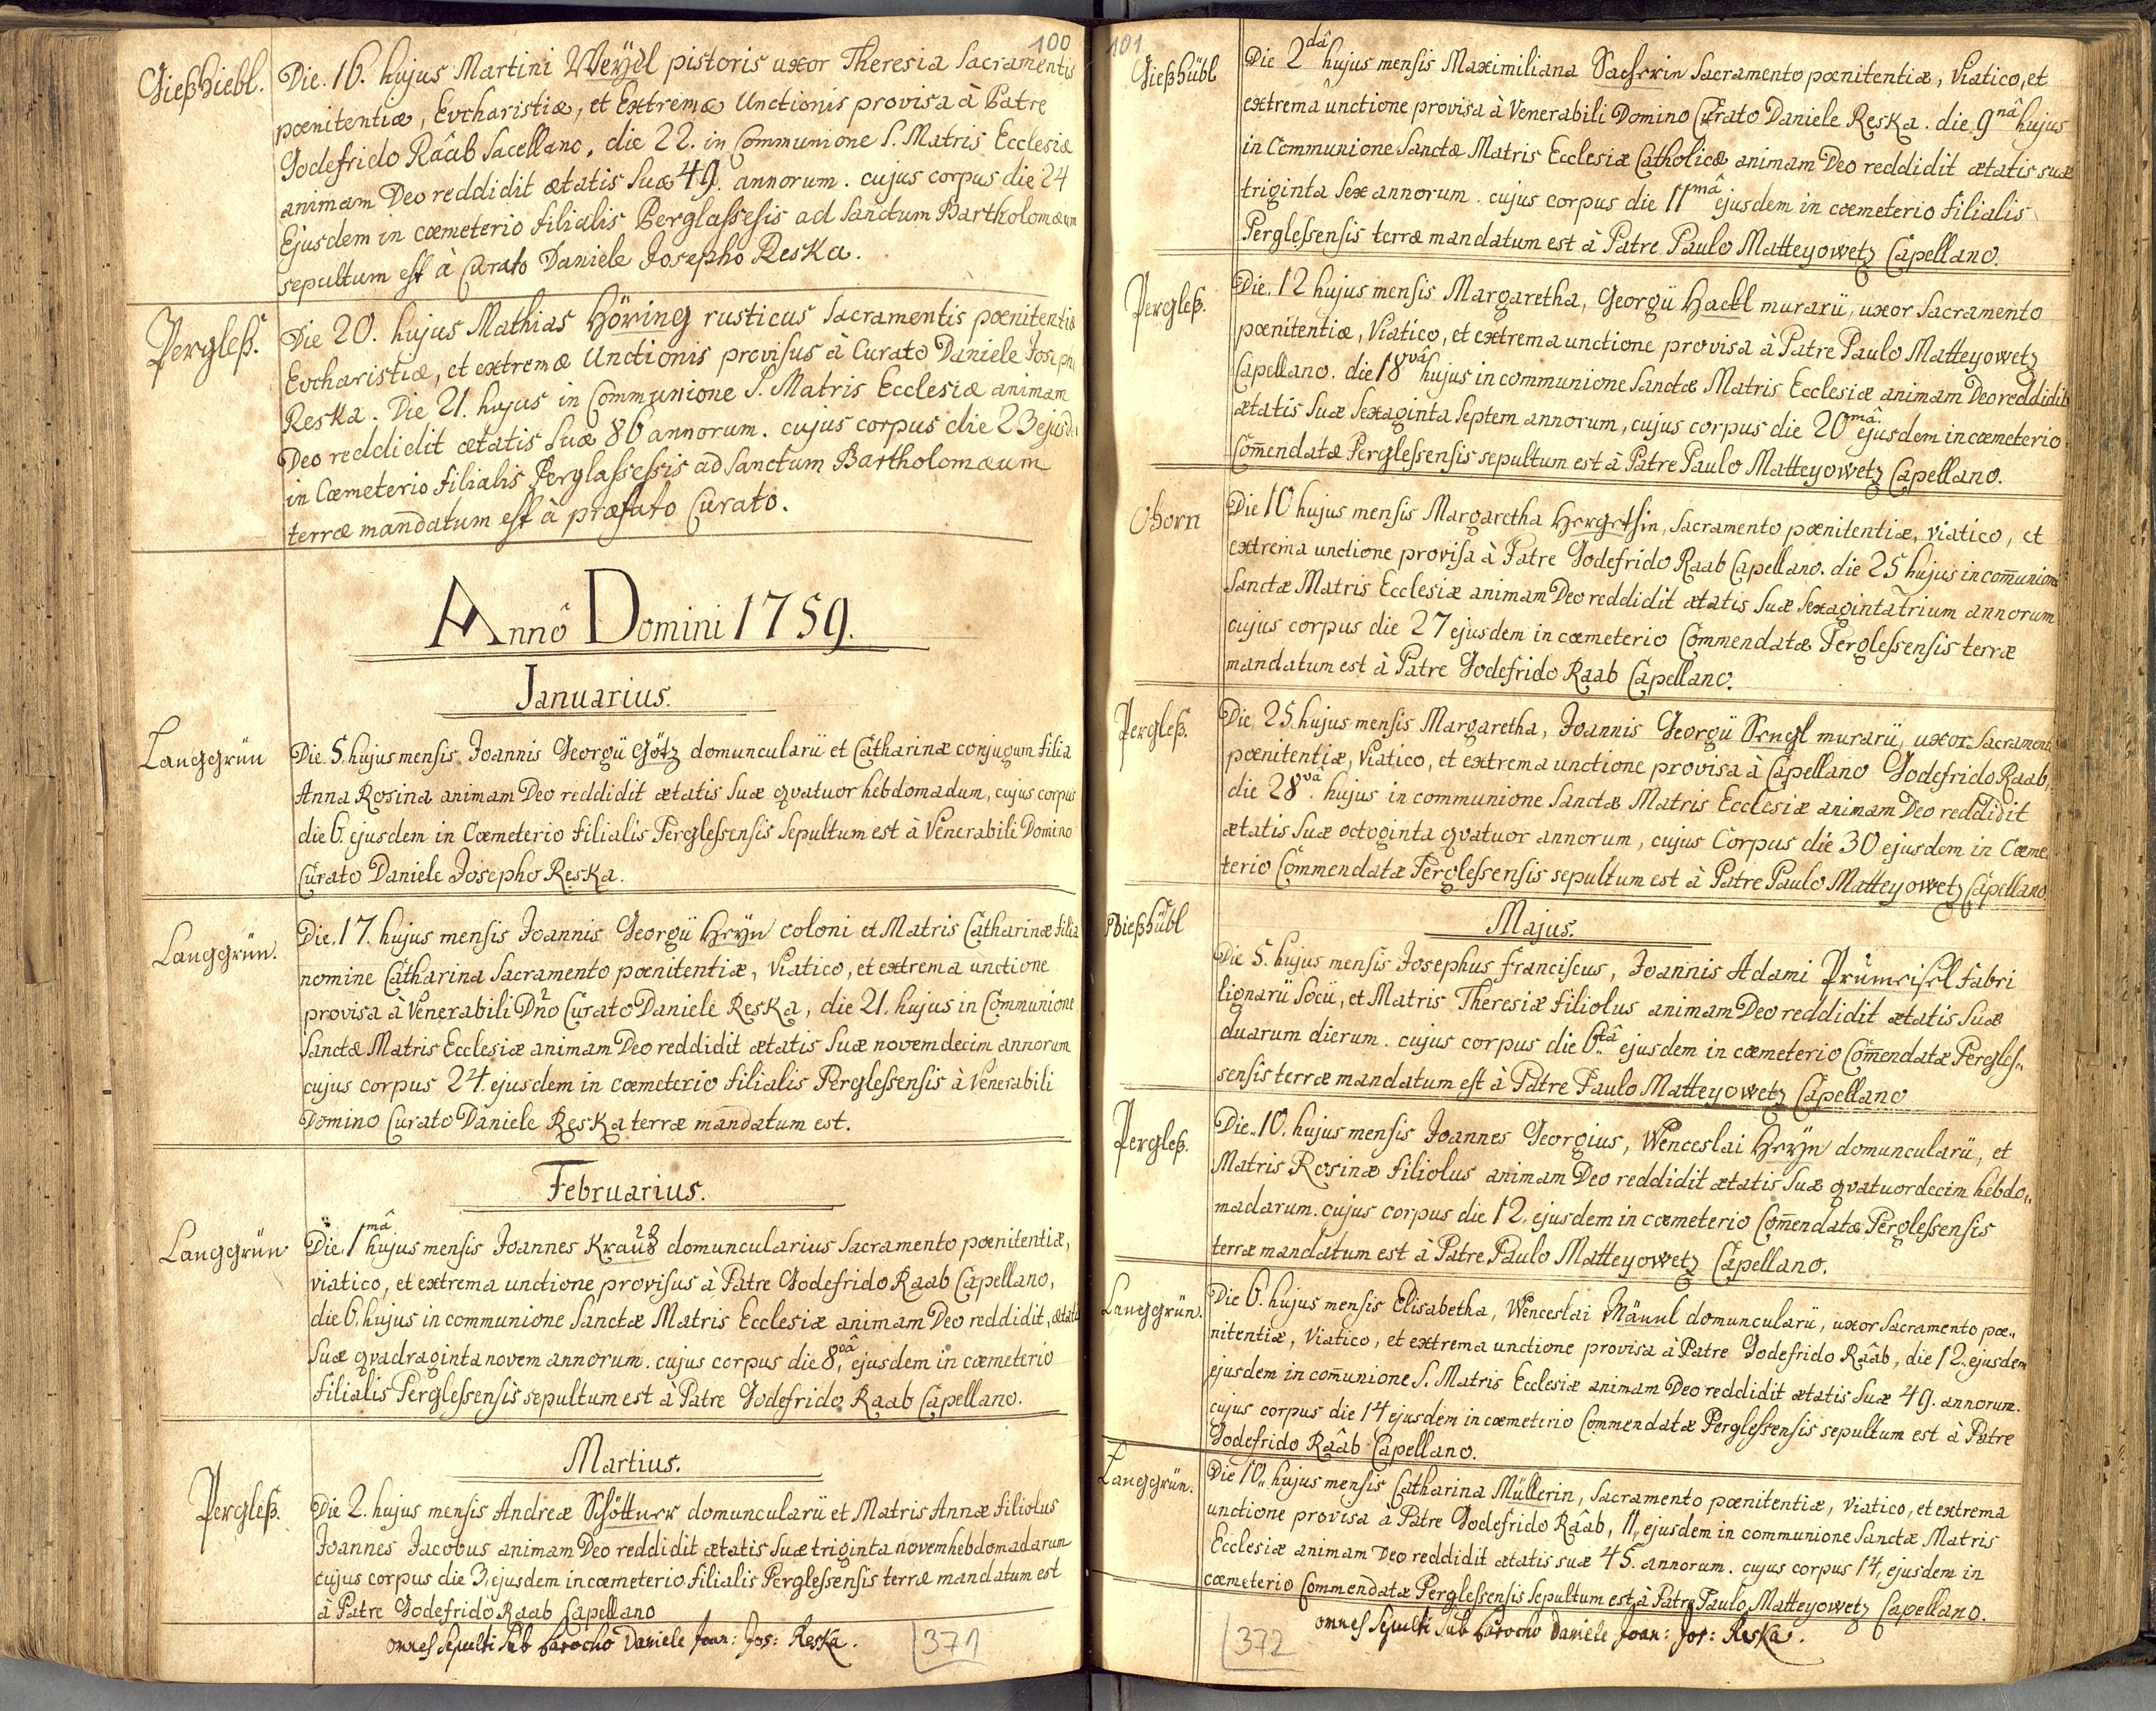 100
Gießhiebl.
Die. 16. hujus Martini Weÿdl pistoris uxor Theresia Sacramentis
pœnitentiæ, Evcharistiæ, et Extremæ Unctionis provisa à Patre
Godefrido Raâb Sacellano, die 22. in Communione S. Matris Ecclesiæ
animam Deo reddidit ætatis Suæ 49. annorum. cujus corpus die 24
Ejusdem in cœmeterio filialis Perglassesis ad Sanctum Bartholomæum
sepultum est à Curato Daniele Josepho Reska.
Pergleß.
Die 20. hujus Mathias Höring rusticus Sacramentis pœnitentiæ
Evcharistiæ, et extremæ Unctionis provisus à Curato Daniele Joseph
Reska. Die 21. hujus in Communione S. Matris Ecclesiæ animam
Deo reddidit ætatis Suæ 86 annorum. cujus corpus die 23 ejusd
in Cœmeterio filialis Perglassessis ad Sanctum Bartholomæum
terræ mandatum est à præfato Curato.
Annô Domini 1759.
Januarius.
Langgrün
Die 5. hujus mensis Joannis Georgii Götz domuncularii et Catharinæ conjugum filia
Anna Rosina animam Deo reddidit ætatis Suæ qvatuor hebdomadum, cujus corpus
die 6. ejusdem in Cœmeterio filialis Perglessensis Sepultum est à Venerabili Domino
Curato Daniele Josepho Reska.
Langgrün.
Die. 17. hujus mensis Joannis Georgii Heÿn coloni et Matris Catharinæ filia
nomine Catharina Sacramento pœnitentiæ, Viatico, et extrema unctione
provisa à Venerabili Dño Curato Daniele Reska, die 21. hujus in Communione
Sanctæ Matris Ecclesiæ animam Deo reddidit ætatis Suæ novemdecim annorum
cujus corpus 24. ejusdem in cœmeterio filialis Perglessensis à Venerabili
Domino Curato Daniele Reska terræ mandatum est.
Februarius.
Langgrün
Die. 1mâ hujus mensis Joannes Krauß domuncularius Sacramento pœnitentiæ,
viatico, et extrema unctione provisus à Patre Godefrido Raab Capellano,
die 6. hujus in communione Sanctæ Matris Ecclesiæ animam Deo reddidit, ætatis
Suæ qvadraginta novem annorum. cujus corpus die 8vâ, ejusdem in cœmeterio
filialis Perglessensis sepultum est à Patre Godefrido Raab Capellano.
Martius.
Pergleß.
Die 2. hujus mensis Andreæ Schöttner domuncularii et Matris Annæ filiolus
Joannes Jacobus animam Deo reddidit ætatis Suæ triginta novem hebdomadarum
cujus corpus die 3, ejusdem in cœmeterio filialis Perglessensis terræ mandatum est
à Patre Godefrido Raab Capellano
omnes Sepulti Sub Parocho Daniele Joan: Jos: Reska.
371
101
Gießhübl
Die 2dâ hujus mensis Maximiliana Sacherin Sacramento pœnitentiæ, Viatico, et
extrema unctione provisa à Venerabili Domino Curato Daniele Reska. die 9nâ hujus
in Communione Sanctæ Matris Ecclesiæ Catholicæ animam Deo reddidit ætatis suæ
triginta Sex annorum. cujus corpus die 11mâ ejusdem in cœmeterio filialis
Perglessensis terræ mandatum est à Patre Paulo Matteyowetz Capellano.
Pergleß.
Die. 12 hujus mensis Margaretha, Georgii Hackl murarii, uxor Sacramento
pœnitentiæ, Viatico, et extrema unctione provisa à Patre Paulo Matteyowetz
Capellano. die 18vâ hujus in communione Sanctæ Matris Ecclesiæ animam Deo reddidit
ætatis Suæ Sexaginta Septem annorum, cujus corpus die 20mâ ejusdem in cœmeterio
Com̄endatæ Perglessensis sepultum est à Patre Paulo Matteyowetz Capellano.
Ohorn
Die 10 hujus mensis Margaretha Hergetsin, Sacramento pœnitentiæ, Viatico, et
extrema unctione provisa à Patre Godefrido Raab Capellano. die 25 hujus in com̄unione
Sanctæ Matris Ecclesiæ animam Deo reddidit ætatis Suæ Sexaginta trium annorum
cujus corpus die 27 ejusdem in cœmeterio Commendatæ Perglessensis terræ
mandatum est à Patre Godefrido Raab Capellano.
Pergleß.
Die, 25. hujus mensis Margaretha, Joannis Georgii Sengl murarii, uxor Sacramento
pœnitentiæ, Viatico, et extrema unctione provisa à Capellano Godefrido Raab,
die 28vâ. hujus in communione Sanctæ Matris Ecclesiæ animam Deo reddidit
ætatis Suæ octoginta qvatuor annorum, cujus Corpus die 30 ejusdem in Cœme-
terio Commendatæ Perglessensis sepultum est à Patre Paulo Matteyowetz Capellano
Majus.
Gießhübl
Die 5. hujus mensis Josephus franciscus, Joannis Adami Prümeisel fabri
lignarii Socii, et Matris Theresiæ filiolus animam Deo reddidit ætatis Suæ
duarum dierum. cujus corpus die 6tâ ejusdem in cœmeterio Com̄endatæ Pergles„
sensis terræ mandatum est à Patre Paulo Matteyowetz Capellano
Pergleß.
Die„ 10. hujus mensis Joannes Georgius, Wenceslai Heÿn domuncularii, et
Matris Rosinæ filiolus animam Deo reddidit ætatis Suæ qvatuordecim hebdo„
madarum. cujus corpus die 12. ejusdem in cœmeterio Com̄endatæ Perglessensis
terræ mandatum est à Patre Paulo Matteyowetz Capellano.
Langgrün.
Die 6. hujus mensis Elisabetha, Wenceslai Männl domuncularii, uxor Sacramento pœ„
nitentiæ, Viatico, et extrema unctione provisa à Patre Godefrido Raâb, die 12. ejusdem
ejusdem in com̄unione S. Matris Ecclesiæ animam Deo reddidit ætatis Suæ 49. annorum.
cujus corpus die 14 ejusdem in cœmeterio Commendatæ Perglessensis sepultum est à Patre
Godefrido Raâb Capellano.
Langgrün.
Die 10„ hujus mensis Catharina Müllerin, Sacramento pœnitentiæ, Viatico, et extrema
unctione provisa à Patre Godefrido Raâb, 11, ejusdem in communione Sanctæ Matris
Ecclesiæ animam Deo reddidit ætatis suæ 45. annorum. cujus corpus 14, ejusdem in
cœmeterio Commendatæ Perglessensis Sepultum est à Patre Paulo Matteyowetz Capellano.
omnes Sepulti Sub Parocho Daniele Joan: Jos: Reska.
372